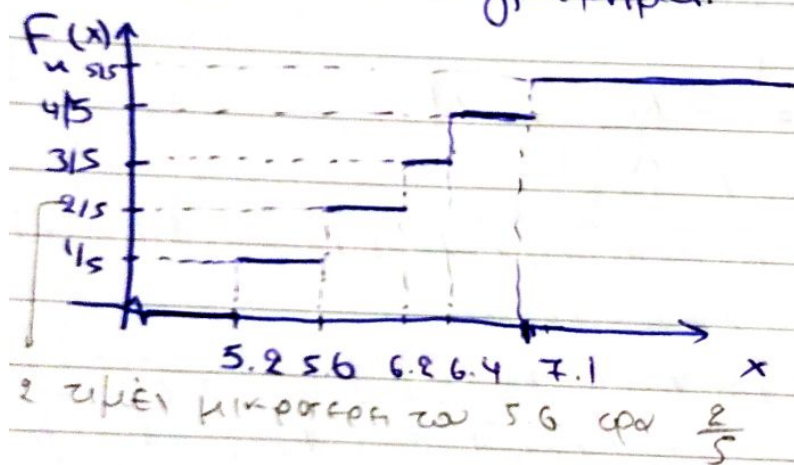 F(x)
5/5
4/5
3/5
2/5
1/5
5.2 5.6 6.2 6.4 7.1 x
2 τιμές μικρότερη του 5.6 άρα 2/5